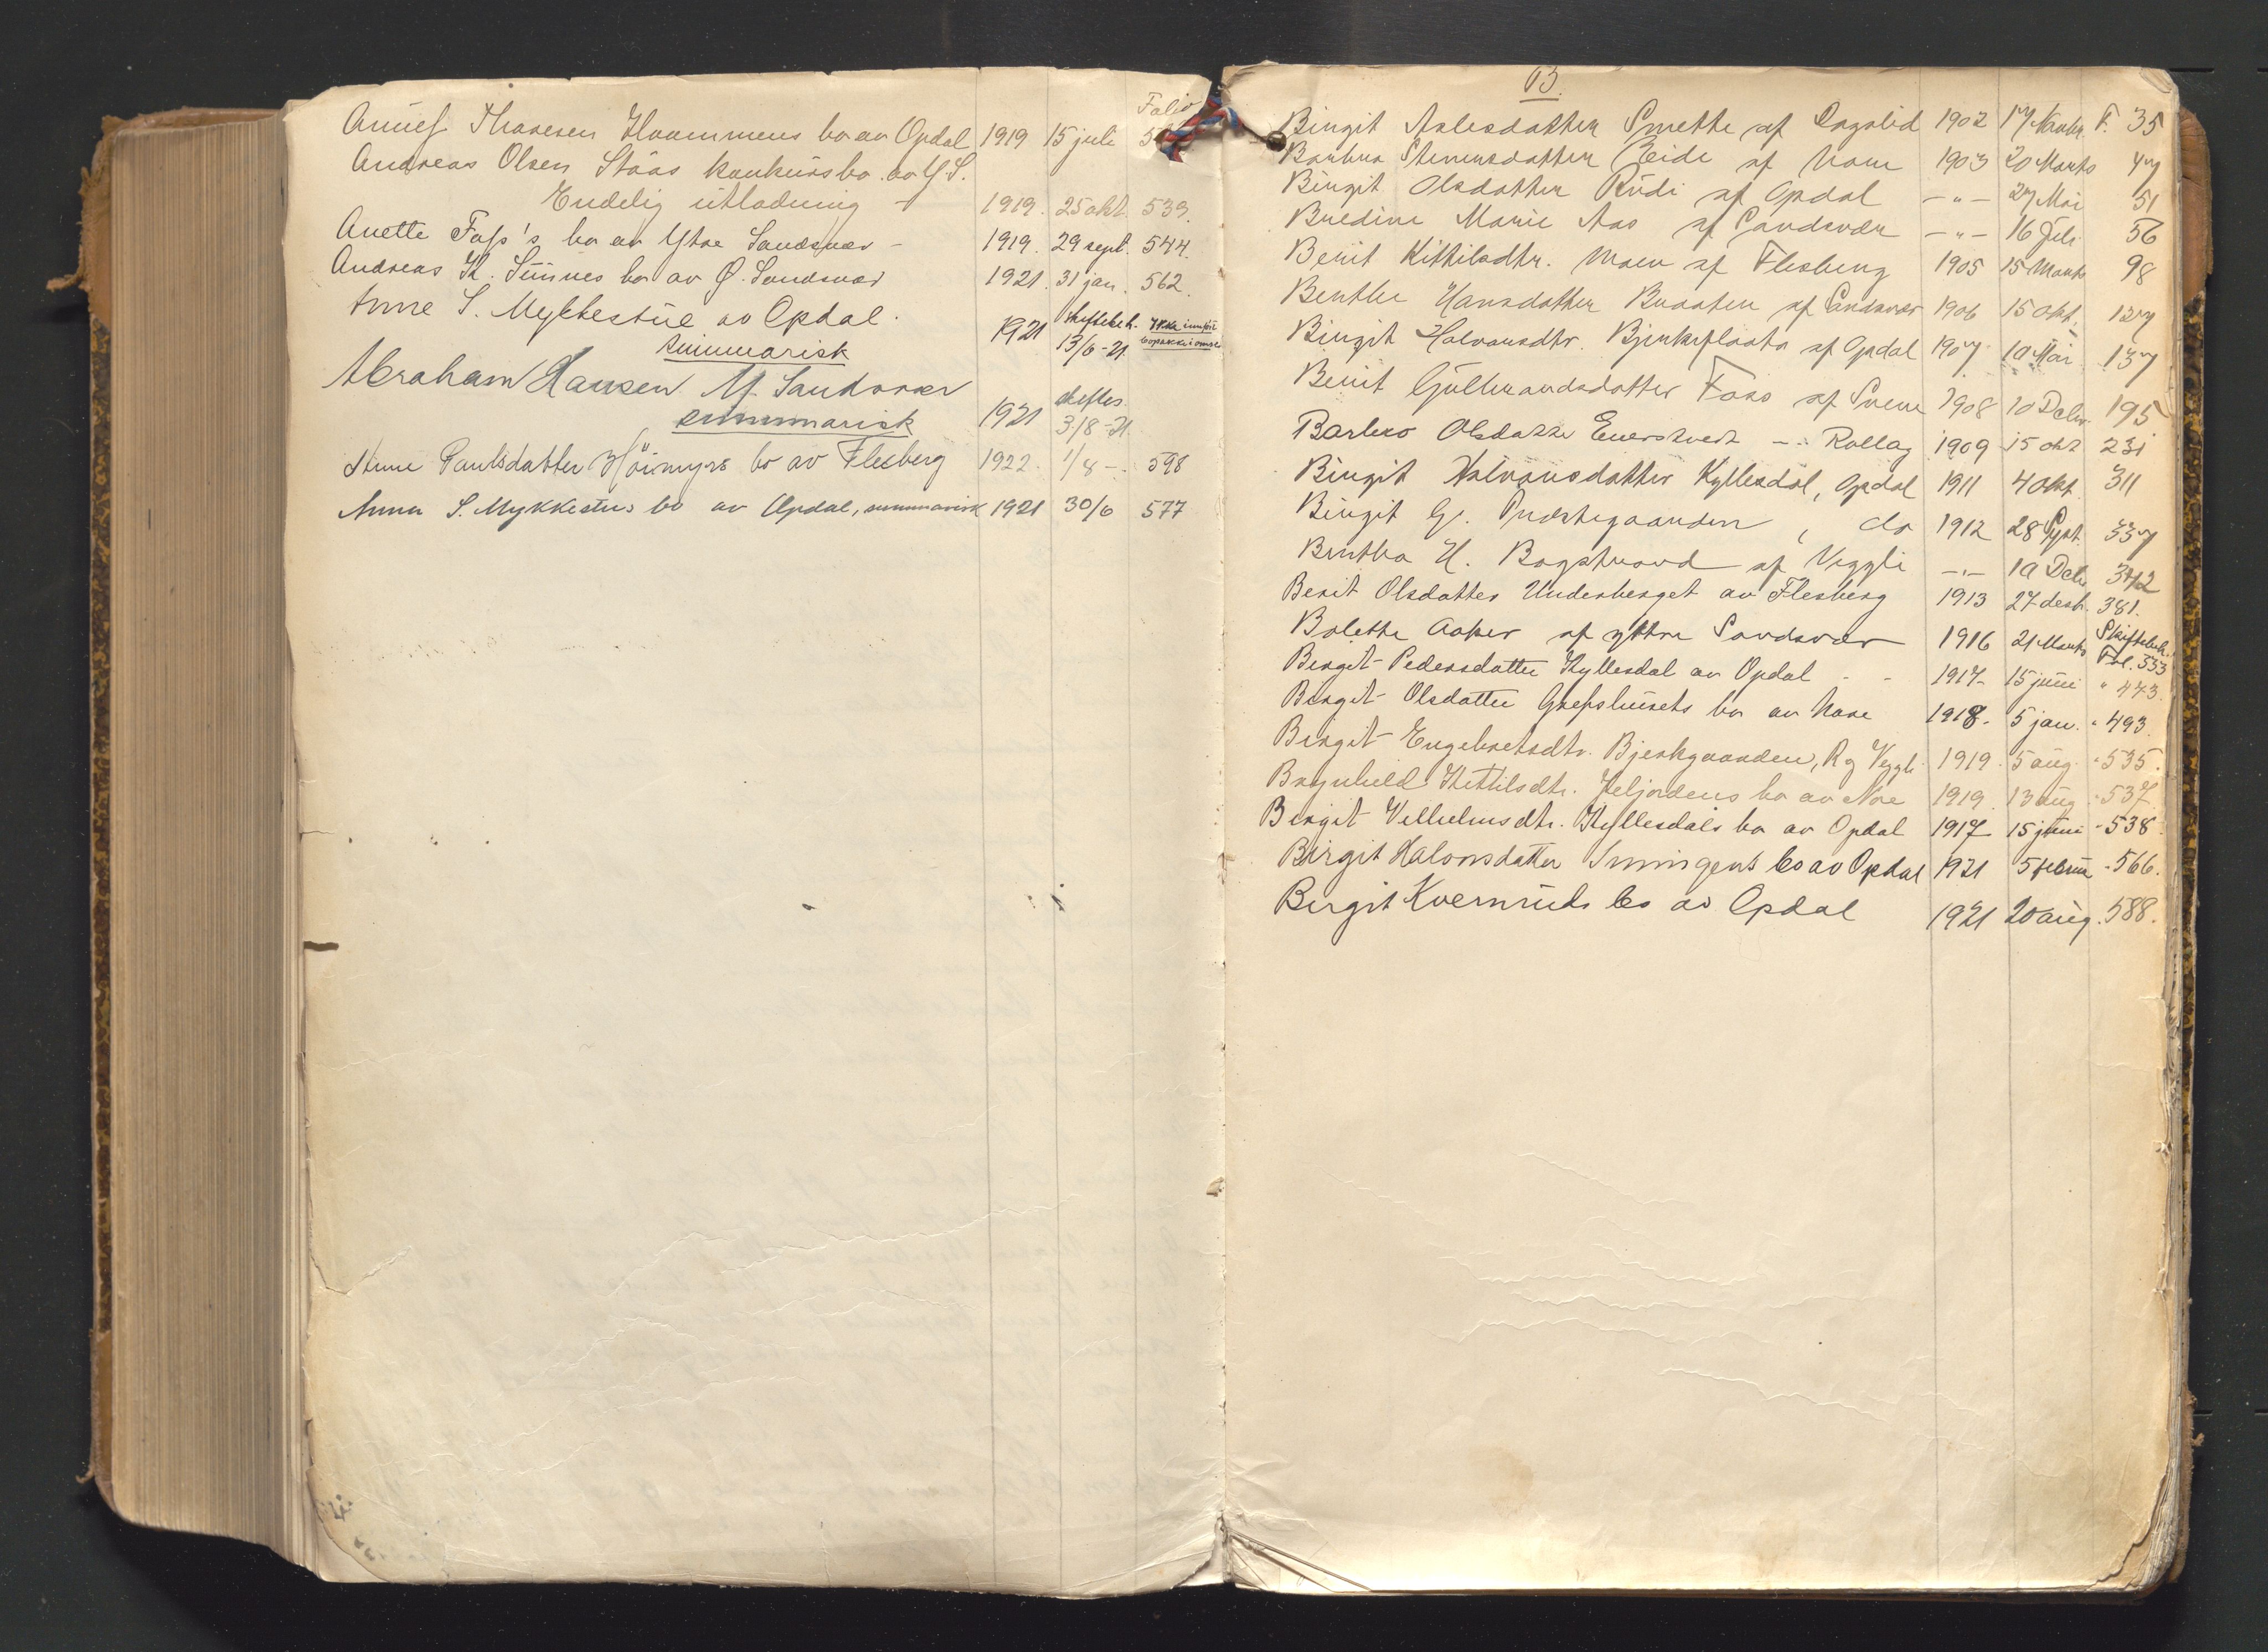 Folio
Anne Thoresen Hvammens bo av Opdal 1919 15 juli
Andreas Olsen Stáas konkursbo av Y. S.
Endelig utlodning – 1919. 25 okt. 539.
Anette Foss's bo av Ytre Sandsvær – 1919. 29 sept. 544.
Andreas Kl. Sünnes bo av Ø. Sandsvær 1921. 31 jan. 562.
Anne S. Mykkestue av Opdal.
summarisk 1921 skiftebeh. 13/6-21 Ikke innført
Abraham Hansen Y. Sandsvær
summarisk 1921 skiftes. 3/8-21
Anne Paulsdatter Höimyrs bo av Flesberg 1922. 1/8 - 598
Anna S. Mykkestus bo av Opdal, summarisk 1921 30/6 577
B.
Birgit Aslesdatter Smette af Dagalid 1902 17 Novbr. F. 35
Barbra Steinersdatter Eide af Nore 1903 20 Marts 47
Birgit Olsdatter Rudi af Opdal – " – 27 Mai 51
Bredine Marie Aas af Sandsvær – " – 16 Juli 56
Berit Kittilsdtr. Moen af Flesberg 1905 15 Marts 98
Benthe Hansdatter Braaten af Sandsvær 1906 15 Okt. 127
Birgit Halvorsdtr. Bjerkeflaata af Opdal 1907 10 Mai 137
Berit Gulbrandsdatter Foss af Svene 1908 10 Debr. 195
Barbro Olsdatter Enerstvedt – " – Rollag 1909 15 okt 231
Birgit Halvorsdatter Kyllesdal, Opdal 1911 4 Okt. 311
Birgit G. Præstegaarden, do 1912 28 Sept. 337
Bertha H. Bogstrand af Veggli – " – 10 Debr 342
Berit Olsdatter Underberget av Flesberg 1913 27 desbr. 381.
Bolette Aaker af yttre Sandsvær 1916 21 Marts Skiftebeh. Fol. 333
Birgit Pedersdatter Kyllesdal av Opdal - - 1917 15 juni " 473.
Birgit Olsdatter Grefshusets bo av Nore 1918. 5 jan. " 493.
Birgit Engebretsdtr. Bjerkgaarden, R og Veggli 1919. 5 aug. " 535.
Bryuhild Kittilsdtr. Jeljordens bo av Nore 1919. 13 aug. " 537.
Birgit Vilhelmsdtr. Kyllesdals bo av Opdal 1917 15 juni " 538.
Birgit Halvorsdatter Imingens bo av Opdal 1921 5 februar - 566.
Birgit Kvernruds bo av Opdal 1921 20 aug. 588.